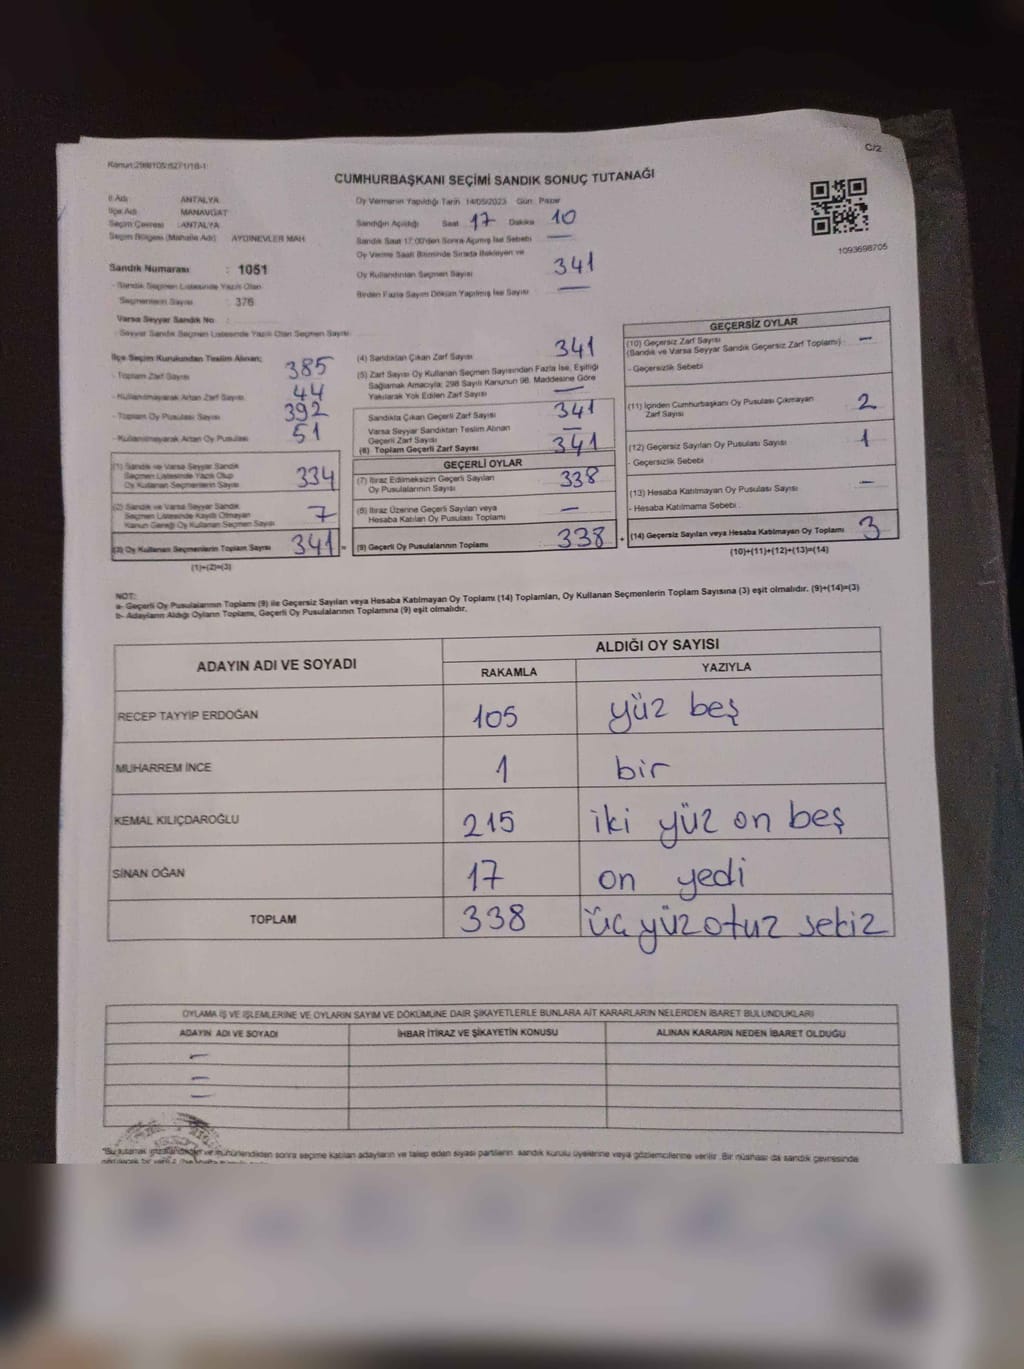 Kanun:298/105:6271/18-1
C/2
CUMHURBAŞKANI SEÇİMİ SANDIK SONUÇ TUTANAĞI
İl Adı ANTALYA
İlçe Adı MANAVGAT
Seçim Çevresi : ANTALYA
Seçim Bölgesi (Mahalle Adı) AYDINEVLER MAH
Oy Vermenin Yapıldığı Tarih 14/05/2023 Gün Pazar
Sandığın Açıldığı Saat 17 Dakika 10
Sandık Saat 17:00'den Sonra Açılmış İse Sebebi —
Oy Verme Saati Bitiminde Sırada Bekleyen ve
Oy Kullandırılan Seçmen Sayısı 341
Birden Fazla Sayım Döküm Yapılmış İse Sayısı —
1093698705
Sandık Numarası : 1051
- Sandık Seçmen Listesinde Yazılı Olan
Seçmenlerin Sayısı : 376
Varsa Seyyar Sandık No :
- Seyyar Sandık Seçmen Listesinde Yazılı Olan Seçmen Sayısı
İlçe Seçim Kurulundan Teslim Alınan;
- Toplam Zarf Sayısı 385
- Kullanılmayarak Artan Zarf Sayısı 44
- Toplam Oy Pusulası Sayısı 392
- Kullanılmayarak Artan Oy Pusulası 51
(1) Sandık ve Varsa Seyyar Sandık
Seçmen Listesinde Yazılı Olup
Oy Kullanan Seçmenlerin Sayısı 334
(2) Sandık ve Varsa Seyyar Sandık
Seçmen Listesinde Kayıtlı Olmayan
Kanun Gereği Oy Kullanan Seçmen Sayısı 7
(3) Oy Kullanan Seçmenlerin Toplam Sayısı 341 =
(1)+(2)=(3)
(4) Sandıktan Çıkan Zarf Sayısı 341
(5) Zarf Sayısı Oy Kullanan Seçmen Sayısından Fazla İse, Eşitliği
Sağlamak Amacıyla; 298 Sayılı Kanunun 98. Maddesine Göre
Yakılarak Yok Edilen Zarf Sayısı —
Sandıkta Çıkan Geçerli Zarf Sayısı 341
Varsa Seyyar Sandıktan Teslim Alınan
Geçerli Zarf Sayısı —
(6) Toplam Geçerli Zarf Sayısı 341
GEÇERLİ OYLAR
(7) İtiraz Edilmeksizin Geçerli Sayılan
Oy Pusulalarının Sayısı 338
(8) İtiraz Üzerine Geçerli Sayılan veya
Hesaba Katılan Oy Pusulası Toplamı —
(9) Geçerli Oy Pusulalarının Toplamı 338 +
GEÇERSİZ OYLAR
(10) Geçersiz Zarf Sayısı
(Sandık ve Varsa Seyyar Sandık Geçersiz Zarf Toplamı) : —
- Geçersizlik Sebebi
(11) İçinden Cumhurbaşkanı Oy Pusulası Çıkmayan
Zarf Sayısı 2
(12) Geçersiz Sayılan Oy Pusulası Sayısı 1
- Geçersizlik Sebebi
(13) Hesaba Katılmayan Oy Pusulası Sayısı —
- Hesaba Katılmama Sebebi
(14) Geçersiz Sayılan veya Hesaba Katılmayan Oy Toplamı 3
(10)+(11)+(12)+(13)=(14)
NOT:
a- Geçerli Oy Pusulalarının Toplamı (9) ile Geçersiz Sayılan veya Hesaba Katılmayan Oy Toplamı (14) Toplamları, Oy Kullanan Seçmenlerin Toplam Sayısına (3) eşit olmalıdır. (9)+(14)=(3)
b- Adayların Aldığı Oyların Toplamı, Geçerli Oy Pusulalarının Toplamına (9) eşit olmalıdır.
ADAYIN ADI VE SOYADI
ALDIĞI OY SAYISI
RAKAMLA YAZIYLA
RECEP TAYYİP ERDOĞAN 105 yüz beş
MUHARREM İNCE 1 bir
KEMAL KILIÇDAROĞLU 215 iki yüz on beş
SİNAN OĞAN 17 on yedi
TOPLAM 338 üç yüz otuz sekiz
OYLAMA İŞ VE İŞLEMLERİNE VE OYLARIN SAYIM VE DÖKÜMÜNE DAİR ŞİKAYETLERLE BUNLARA AİT KARARLARIN NELERDEN İBARET BULUNDUKLARI
ADAYIN ADI VE SOYADI İHBAR İTİRAZ VE ŞİKAYETİN KONUSU ALINAN KARARIN NEDEN İBARET OLDUĞU
—
—
—
ve mühürlendikten sonra seçime katılan adayların ve talep eden siyasi partilerin sandık kurulu üyelerine veya gözlemcilerine verilir. Bir nüshası da sandık çevresinde